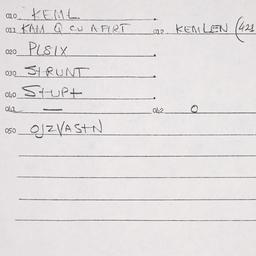 010 KEML
011 KAM Q CU AFIRT 012 KEMLEN (421
020 PISIX
030 STRUNT
040 STUPT
041 — 042 O
050 OJZVASTN